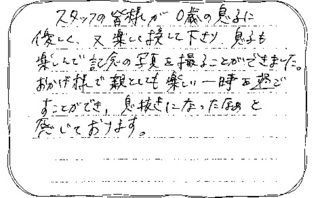 スタッフの皆様が0歳の息子に
優しく、又楽しく接して下さり 息子も
楽しんで記念の写真を撮ることができました。
おかげ様で親としても楽しい一時を過ご
すことができ、息抜きになったなぁと
感じております。